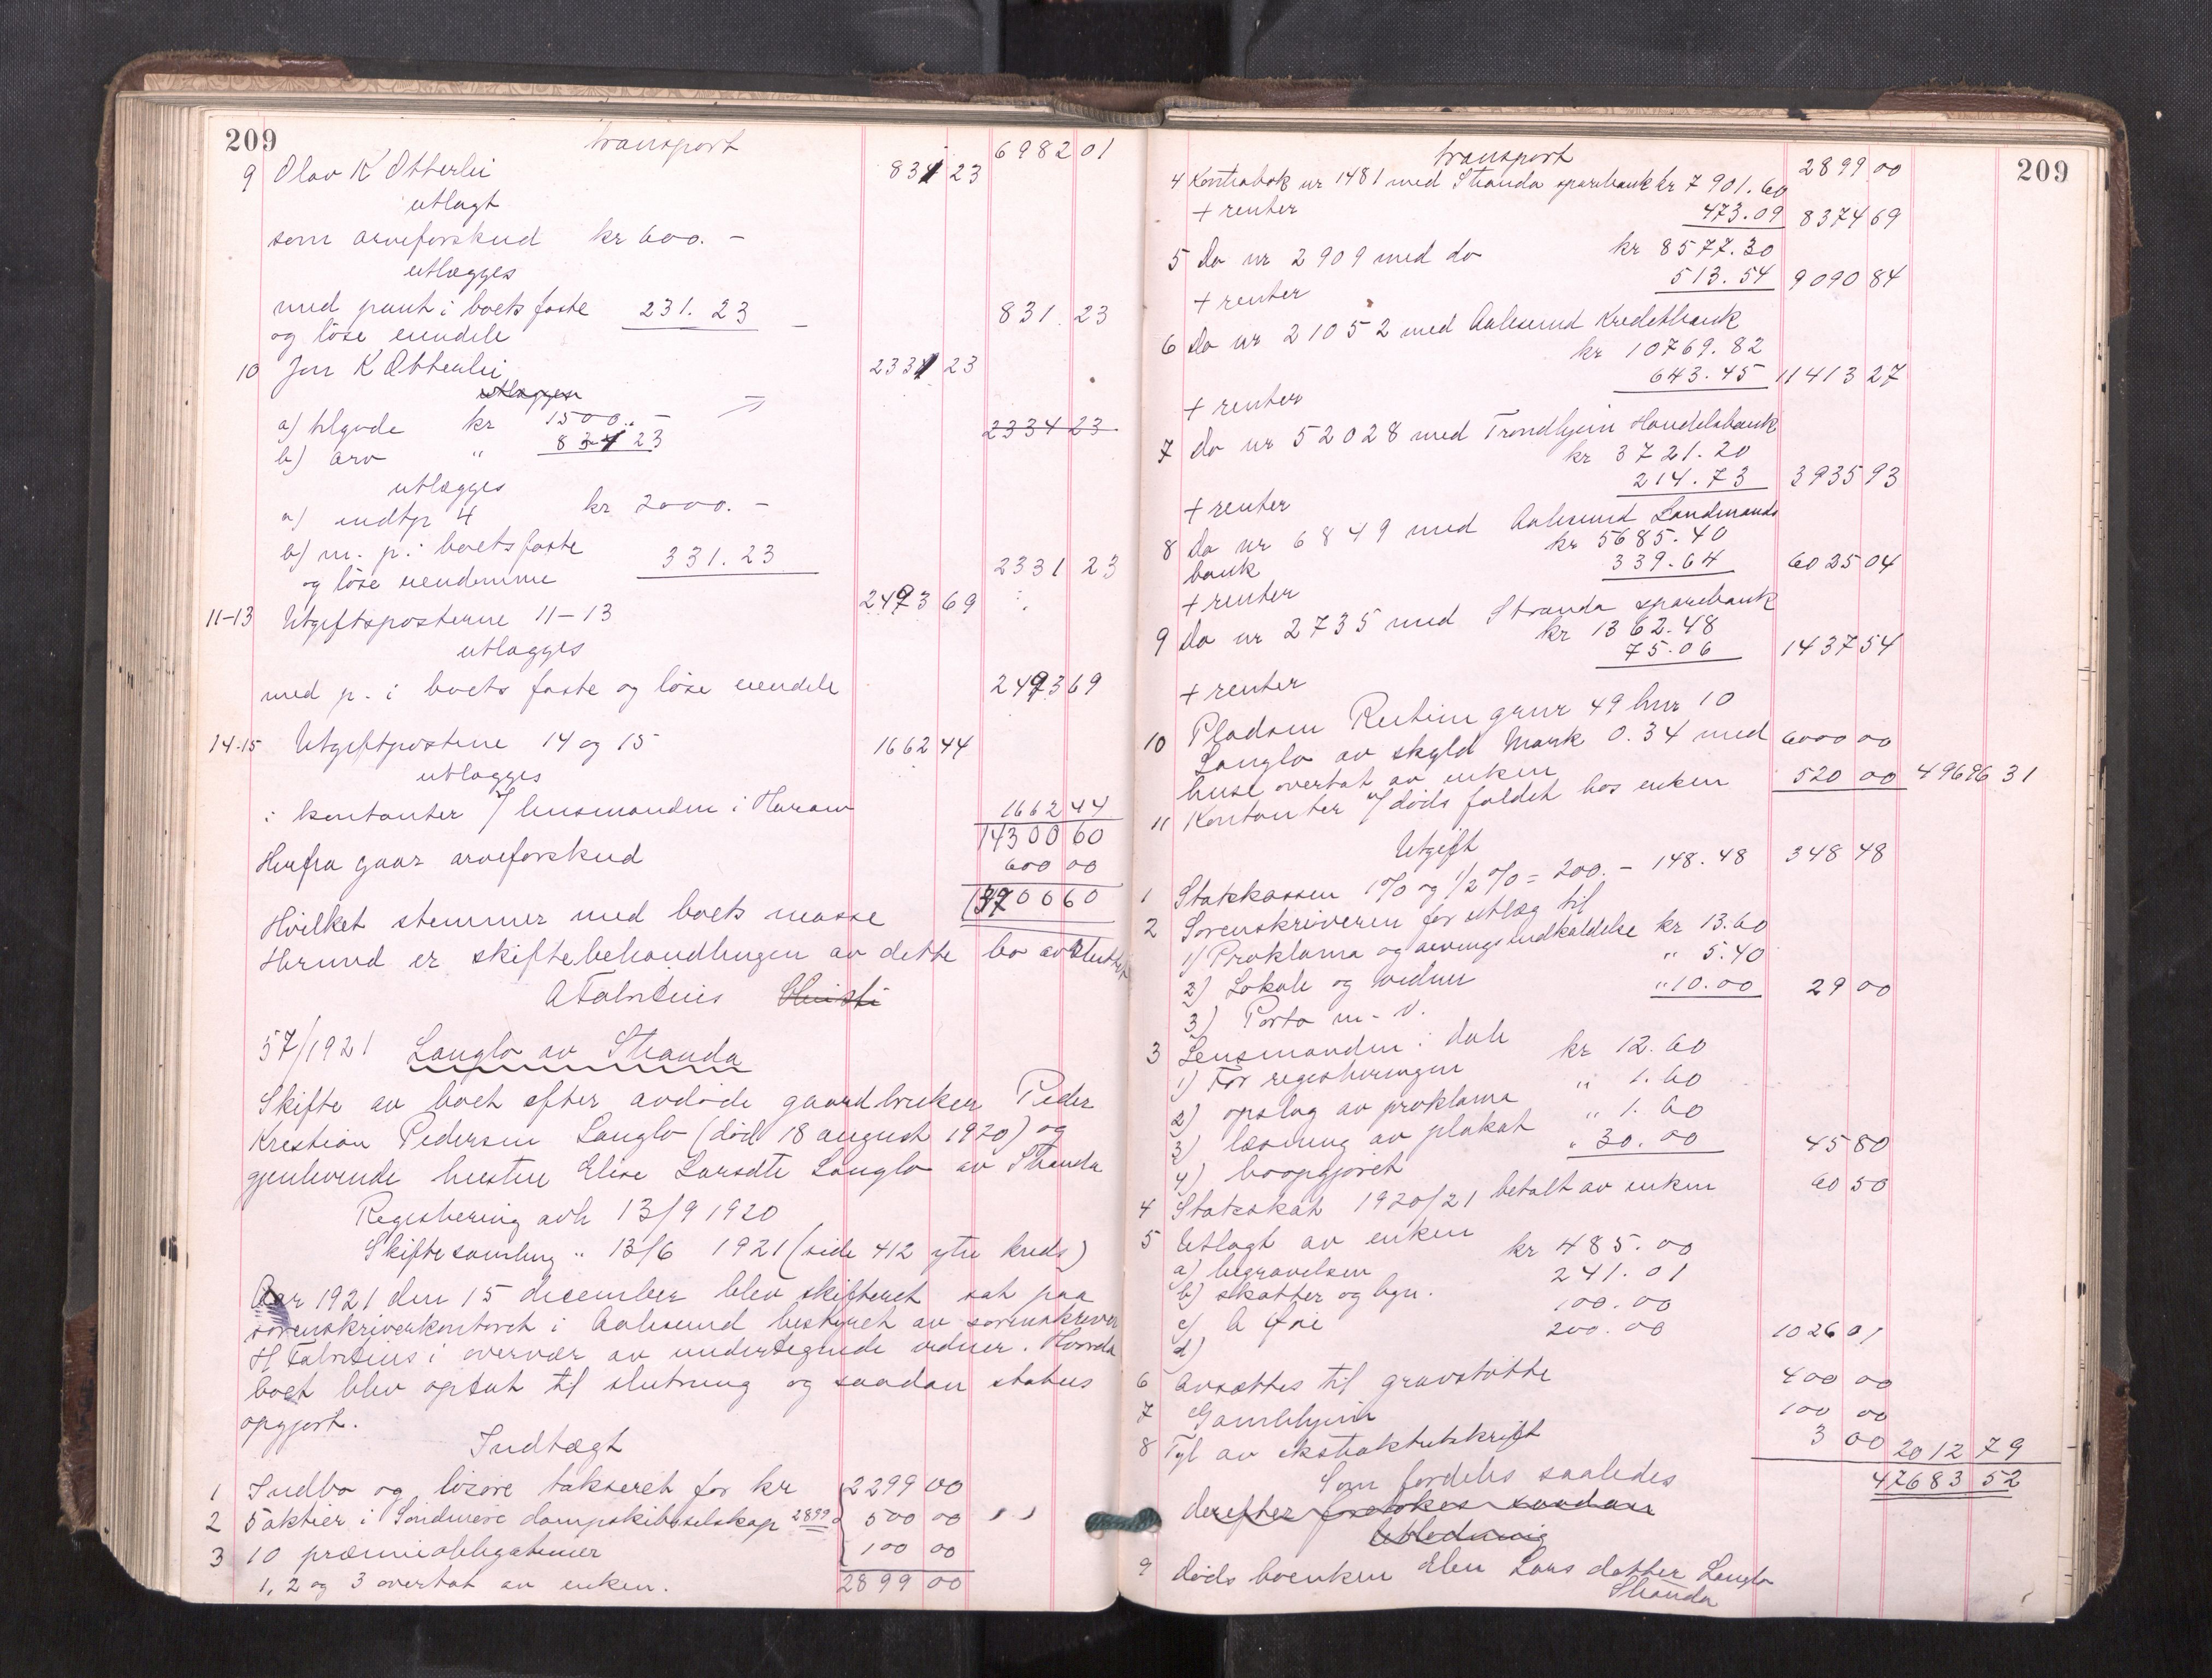 209
transport 6982 01
9 Olav K Otterlei 831 23
utlagt
som arveforskud kr 600. –
utlægges
med pant i boets faste 231. 23 – 831 23
og löse eiendele
10 Jon K Otterlei 2331 23
utlægges
a) tilgode kr 1500. – 2334 23
b) arv " 831 23
utlægges
a) indtp 4 kr 2000. –
b) m. p. i boets faste 331. 23 2331 23
og löse eiendomme
11-13 Utgiftsposterne 11-13 2493 69
utlægges
med p. i boets faste og löse eiendele 2493 69
14-15 Utgiftpostene 14 og 15 1662 44
utlægges
i kontanter h/ lensmanden i Haram 1662 44
14300 60
Herfra gaar arveforskud 600 00
Hvilket stemmer med boets masse 13700 60
Hermed er skiftebehandlingen av dette bo avsluttet
H Fabritius Christi
57/1921 Langlo av Stranda
Skifte av boet efter avdöde gaardbruker Peder
Kristian Pedersen Langlo (död 18 august 1920) og
gjenlevende hustru Elise Larsdtr Langlo av Stranda
Registrering avh 13/9 1920
Skiftesamling " 13/6 1921 (side 412 ytre kreds)
Aar 1921 den 15 december blev skifteret sat paa
sorenskriverkontoret i Aalesund bestyret av sorenskriver
H Fabritius i overvær av undertegnede vidner. Hvorda
boet blev optat til slutning og saadan status
opgjort.
Indtægt
1 Indbo og lösöre taksert for kr 2299 00
2 5 aktier i Söndmöre dampskibsselskap 2899 500 00 " "
3 10 præmieobligationer 100 00
1, 2 og 3 overtat av enken. 2899 00
209
transport 2899 00
4 Kontrabok nr 1481 med Stranda sparebank kr 7901. 60
+ renter 473. 09 8374 69
5 Do nr 2909 med do kr 8577. 30
+ renter 513. 54 9090 84
6 Do nr 21052 med Aalesund Kreditbank
kr 10769. 82
+ renter 643. 45 11413 27
7 Do nr 52028 med Trondhjem Handelsbank
kr 3721. 20
+ renter 214. 73 3935 93
8 Do nr 6849 med Aalesund Landmands
bank kr 5685. 40
+ renter 339. 64 6025 04
9 Do nr 2735 med Stranda sparebank
kr 1362. 48
+ renter 75. 06 1437 54
10 Pladsen gnr 49 bnr 10
Langlo av skyld Mark 0.34 med 6000 00
huse overtat av enken
11 Kontanter v/ dödsfaldet hos enken 520 00 49696 31
Utgift
1 Statskassen 1% og 1/2 % = 200. – 148. 48 348 48
2 Sorenskriveren for utlæg til
1) Proklama og arvingsindkaldelse kr 13. 60
2) Lokale og vidner " 5. 40
3) Porto m. v. " 10. 00 29 00
3 Lensmanden i dale
1) For registreringen kr 12. 60
2) opslag av proklama " 1. 60
3) læsning av plakat " 1. 60
4) boopgjöret " 30. 00 45 80
4 Statsskat 1920/21 betalt av enken 60 50
5 Utlagt av enken
a) begravelsen kr 485. 00
b) skatter og byn. 241. 01
c) A Öie 100. 00
d) 200. 00 1026 01
6 Avsættes til gravstötte 400 00
7 Gamlehjem 100 00
8 Tgl av ekstraktutskrift 3 00 2012 79
Som fordeles saaledes 47683 52
derefter foretokes saadan
Utlodning
9 dödsboenken Elen Lars datter Langlo
Stranda